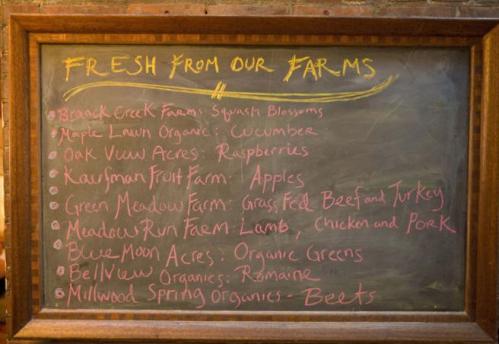 FRESH FROM OUR FARMS
Branch Creek Farms: Squash Blossoms
Maple Lawn Organic: Cucumber
Oak View Acres: Raspberries
Kaufman Fruit Farm: Apples
Green Meadow Farm: Grass Fed Beef and Turkey
Meadow Run Farm: Lamb, Chicken and Pork
Blue Moon Acres: Organic Greens
Bellview Organics: Romaine
Millwood Spring Organics - Beets